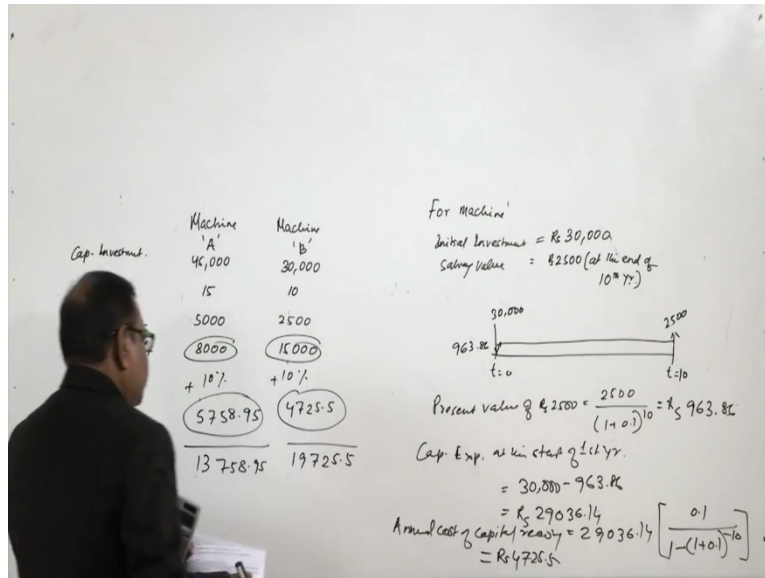 Machine Machine
'A' 'B'
Cap. Investment. 45,000 30,000
15 10
5000 2500
8000 15000
+ 10% +10%
5758.95 4725.5
13758.95 19725.5
For machine'
Initial Investment = Rs 30,000
Salvag value = Rs2500 (at the end of
10th yr.)
30,000 2500
963.86
t=0 t=10
Present value of Rs 2500 = 2500 / (1+0.1)^10 = Rs 963.86
Cap. Exp. at the start of 1st yr.
= 30,000 - 963.86
= Rs 29036.14
Annual cost of capital recovy = 29036.14 [ 0.1 / 1-(1+0.1)^-10 ].
= Rs 4725.5